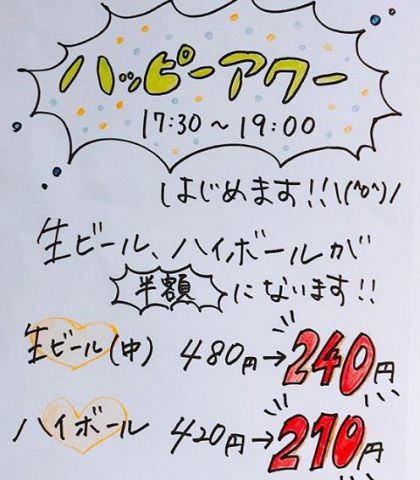 ハッピーアワー
17:30～19:00
はじめます!!\(^o^)/
生ビール、ハイボールが
半額になります!!
生ビール(中) 480円→240円
ハイボール 420円→210円